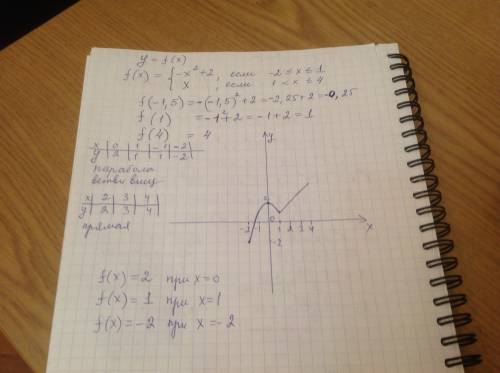 y = f(x)
f(x) = { -x² + 2, если -2 ≤ x ≤ 1
x , если 1 < x ≤ 4
f(-1,5) = -(-1,5)² + 2 = -2,25 + 2 = -0,25
f(1) = -1² + 2 = -1 + 2 = 1
f(4) = 4
x | 0 | 1 | -1 | -2
y | 2 | 1 | 1 | -2
парабола
ветви вниз
x | 2 | 3 | 4
y | 2 | 3 | 4
прямая
y
2
0
-2 -1 1 2 3 4
x
-2
f(x) = 2 при x = 0
f(x) = 1 при x = 1
f(x) = -2 при x = -2